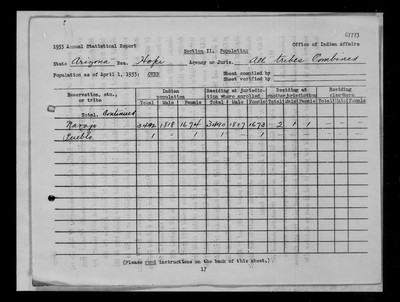 62773
1933 Annual Statistical Report Office of Indian Affairs
Section II. Population
State Arizona Res. Hopi Agency or Juris. All tribes Combined
Population as of April 1, 1933: OVER Sheet compiled by
Sheet verified by
Reservation, etc., or tribe Indian population Residing at jurisdiction where enrolled Residing at another jurisdiction Residing elsewhere
Total Male Female Total Male Female Total Male Female Total Male Female
Total. Continued
Navajo 3492 1818 1674 3490 1817 1673 2 1 1 - - -
Pueblo 1 - 1 1 - 1 - - - - - -
(Please read instructions on the back of this sheet.)
17